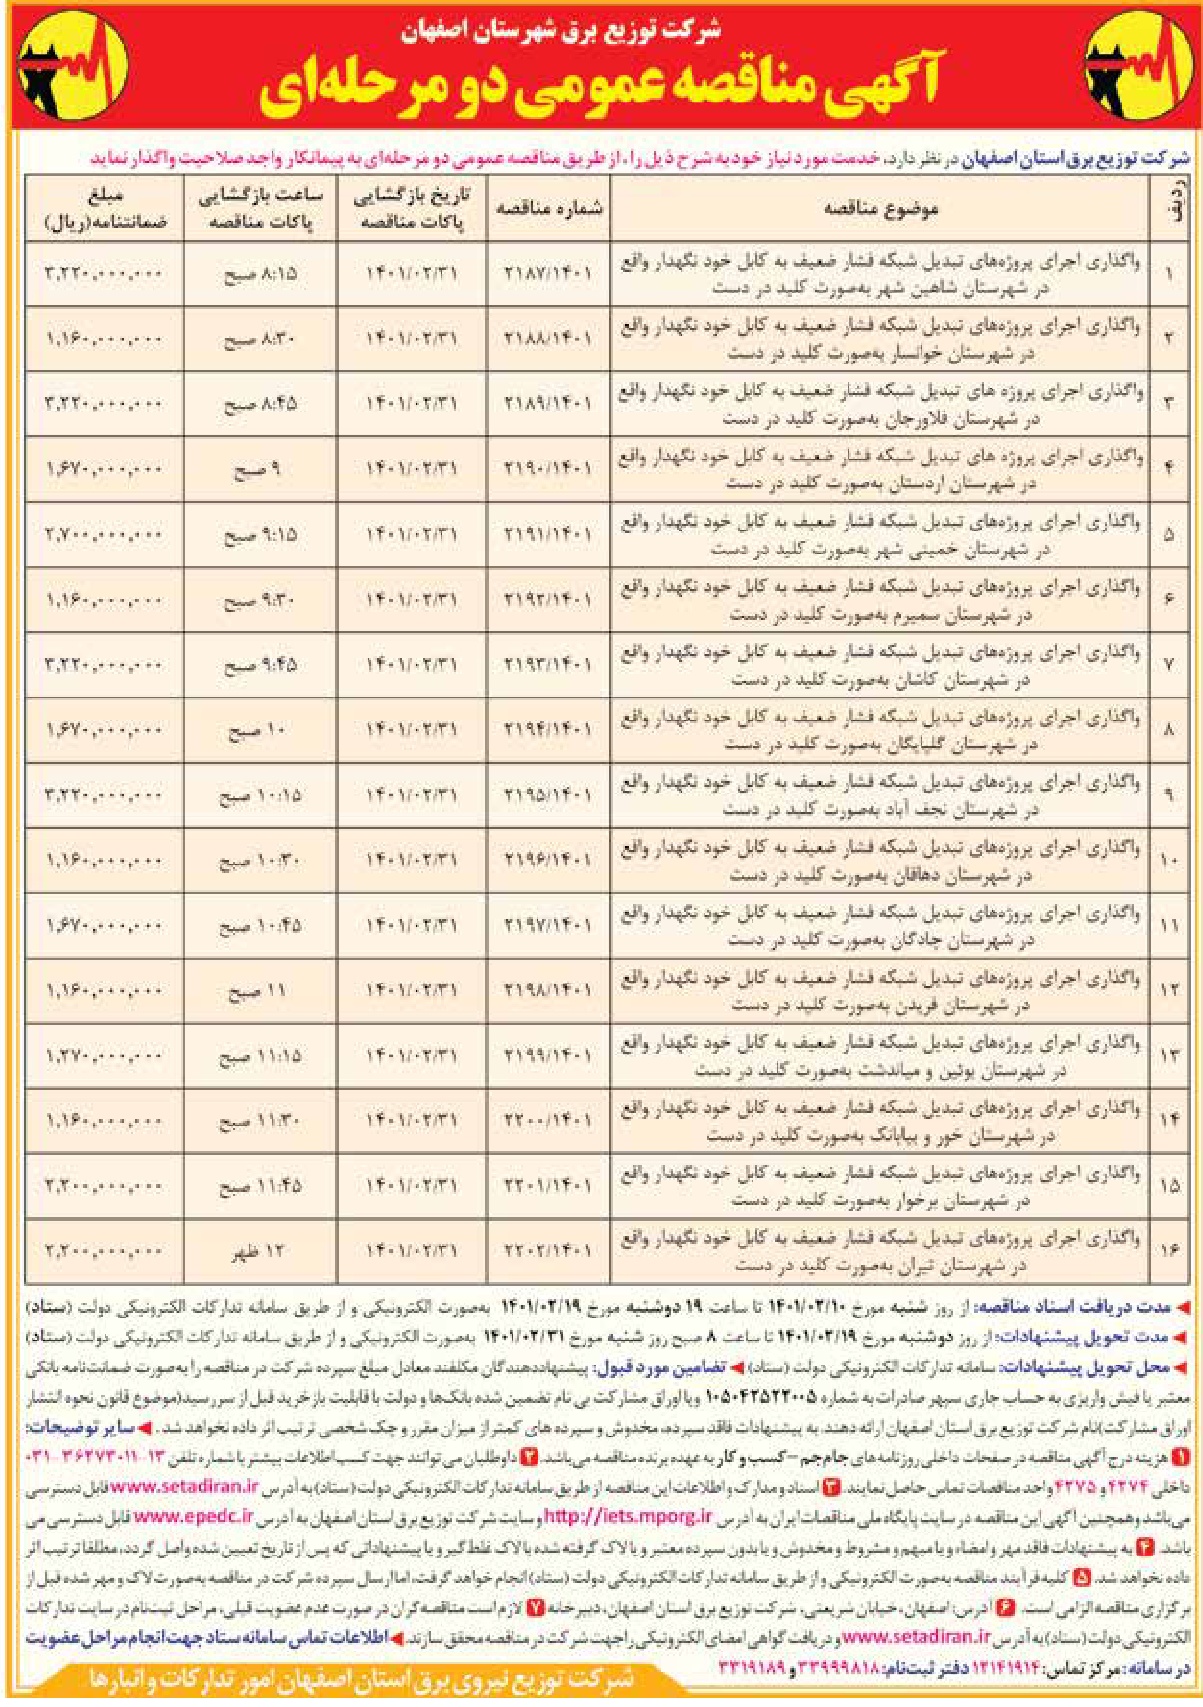 شرکت توزیع برق شهرستان اصفهان
آگهی مناقصه عمومی دو مرحله‌ای
شرکت توزیع برق استان اصفهان در نظر دارد، خدمت مورد نیاز خود به شرح ذیل را، از طریق مناقصه عمومی دو مرحله‌ای به پیمانکار واجد صلاحیت واگذار نماید
ردیف موضوع مناقصه شماره مناقصه تاریخ بازگشایی پاکات مناقصه ساعت بازگشایی پاکات مناقصه مبلغ ضمانتنامه(ریال)
۱ واگذاری اجرای پروژه‌های تبدیل شبکه فشار ضعیف به کابل خود نگهدار واقع ۲۱۸۷/۱۴۰۱ ۱۴۰۱/۰۲/۳۱ ۸:۱۵ صبح ۳,۲۲۰,۰۰۰,۰۰۰
در شهرستان شاهین شهر به‌صورت کلید در دست
۲ واگذاری اجرای پروژه‌های تبدیل شبکه فشار ضعیف به کابل خود نگهدار واقع ۲۱۸۸/۱۴۰۱ ۱۴۰۱/۰۲/۳۱ ۸:۳۰ صبح ۱,۱۶۰,۰۰۰,۰۰۰
در شهرستان خوانسار به‌صورت کلید در دست
۳ واگذاری اجرای پروژه های تبدیل شبکه فشار ضعیف به کابل خود نگهدار واقع ۲۱۸۹/۱۴۰۱ ۱۴۰۱/۰۲/۳۱ ۸:۴۵ صبح ۳,۲۲۰,۰۰۰,۰۰۰
در شهرستان فلاورجان به‌صورت کلید در دست
۴ واگذاری اجرای پروژه های تبدیل شبکه فشار ضعیف به کابل خود نگهدار واقع ۲۱۹۰/۱۴۰۱ ۱۴۰۱/۰۲/۳۱ ۹ صبح ۱,۶۷۰,۰۰۰,۰۰۰
در شهرستان اردستان به‌صورت کلید در دست
۵ واگذاری اجرای پروژه‌های تبدیل شبکه فشار ضعیف به کابل خود نگهدار واقع ۲۱۹۱/۱۴۰۱ ۱۴۰۱/۰۲/۳۱ ۹:۱۵ صبح ۲,۷۰۰,۰۰۰,۰۰۰
در شهرستان خمینی شهر به‌صورت کلید در دست
۶ واگذاری اجرای پروژه‌های تبدیل شبکه فشار ضعیف به کابل خود نگهدار واقع ۲۱۹۲/۱۴۰۱ ۱۴۰۱/۰۲/۳۱ ۹:۳۰ صبح ۱,۱۶۰,۰۰۰,۰۰۰
در شهرستان سمیرم به‌صورت کلید در دست
۷ واگذاری اجرای پروژه‌های تبدیل شبکه فشار ضعیف به کابل خود نگهدار واقع ۲۱۹۳/۱۴۰۱ ۱۴۰۱/۰۲/۳۱ ۹:۴۵ صبح ۳,۲۲۰,۰۰۰,۰۰۰
در شهرستان کاشان به‌صورت کلید در دست
۸ واگذاری اجرای پروژه‌های تبدیل شبکه فشار ضعیف به کابل خود نگهدار واقع ۲۱۹۴/۱۴۰۱ ۱۴۰۱/۰۲/۳۱ ۱۰ صبح ۱,۶۷۰,۰۰۰,۰۰۰
در شهرستان گلپایگان به‌صورت کلید در دست
۹ واگذاری اجرای پروژه‌های تبدیل شبکه فشار ضعیف به کابل خود نگهدار واقع ۲۱۹۵/۱۴۰۱ ۱۴۰۱/۰۲/۳۱ ۱۰:۱۵ صبح ۳,۲۲۰,۰۰۰,۰۰۰
در شهرستان نجف آباد به‌صورت کلید در دست
۱۰ واگذاری اجرای پروژه‌های تبدیل شبکه فشار ضعیف به کابل خود نگهدار واقع ۲۱۹۶/۱۴۰۱ ۱۴۰۱/۰۲/۳۱ ۱۰:۳۰ صبح ۱,۱۶۰,۰۰۰,۰۰۰
در شهرستان دهاقان به‌صورت کلید در دست
۱۱ واگذاری اجرای پروژه‌های تبدیل شبکه فشار ضعیف به کابل خود نگهدار واقع ۲۱۹۷/۱۴۰۱ ۱۴۰۱/۰۲/۳۱ ۱۰:۴۵ صبح ۱,۶۷۰,۰۰۰,۰۰۰
در شهرستان چادگان به‌صورت کلید در دست
۱۲ واگذاری اجرای پروژه‌های تبدیل شبکه فشار ضعیف به کابل خود نگهدار واقع ۲۱۹۸/۱۴۰۱ ۱۴۰۱/۰۲/۳۱ ۱۱ صبح ۱,۱۶۰,۰۰۰,۰۰۰
در شهرستان فریدن به‌صورت کلید در دست
۱۳ واگذاری اجرای پروژه‌های تبدیل شبکه فشار ضعیف به کابل خود نگهدار واقع ۲۱۹۹/۱۴۰۱ ۱۴۰۱/۰۲/۳۱ ۱۱:۱۵ صبح ۱,۲۷۰,۰۰۰,۰۰۰
در شهرستان بوئین و میاندشت به‌صورت کلید در دست
۱۴ واگذاری اجرای پروژه‌های تبدیل شبکه فشار ضعیف به کابل خود نگهدار واقع ۲۲۰۰/۱۴۰۱ ۱۴۰۱/۰۲/۳۱ ۱۱:۳۰ صبح ۱,۱۶۰,۰۰۰,۰۰۰
در شهرستان خور و بیابانک به‌صورت کلید در دست
۱۵ واگذاری اجرای پروژه‌های تبدیل شبکه فشار ضعیف به کابل خود نگهدار واقع ۲۲۰۱/۱۴۰۱ ۱۴۰۱/۰۲/۳۱ ۱۱:۴۵ صبح ۲,۲۰۰,۰۰۰,۰۰۰
در شهرستان برخوار به‌صورت کلید در دست
۱۶ واگذاری اجرای پروژه‌های تبدیل شبکه فشار ضعیف به کابل خود نگهدار واقع ۲۲۰۲/۱۴۰۱ ۱۴۰۱/۰۲/۳۱ ۱۲ ظهر ۲,۲۰۰,۰۰۰,۰۰۰
در شهرستان تیران به‌صورت کلید در دست
مدت دریافت اسناد مناقصه: از روز شنبه مورخ ۱۴۰۱/۰۲/۱۰ تا ساعت ۱۹ دوشنبه مورخ ۱۴۰۱/۰۲/۱۹ به‌صورت الکترونیکی و از طریق سامانه تدارکات الکترونیکی دولت (ستاد)
مدت تحویل پیشنهادات: از روز دوشنبه مورخ ۱۴۰۱/۰۲/۱۹ تا ساعت ۸ صبح روز شنبه مورخ ۱۴۰۱/۰۲/۳۱ به‌صورت الکترونیکی و از طریق سامانه تدارکات الکترونیکی دولت (ستاد)
محل تحویل پیشنهادات: سامانه تدارکات الکترونیکی دولت (ستاد) تضامین مورد قبول: پیشنهاددهندگان مکلفند معادل مبلغ سپرده شرکت در مناقصه را به‌صورت ضمانت‌نامه بانکی
معتبر یا فیش واریزی به حساب جاری سپهر صادرات به شماره ۰۱۰۵۰۴۲۵۲۲۰۰۵ و یا اوراق مشارکت بی نام تضمین شده بانک‌ها و دولت با قابلیت بازخرید قبل از سررسید(موضوع قانون نحوه انتشار
اوراق مشارکت)نام شرکت توزیع برق استان اصفهان ارائه دهند. به پیشنهادات فاقد سپرده، مخدوش و سپرده های کمتر از میزان مقرر و چک شخصی ترتیب اثر داده نخواهد شد. سایر توضیحات:
۱ هزینه درج آگهی مناقصه در صفحات داخلی روزنامه‌های جام‌جم-کسب و کار به عهده برنده مناقصه می‌باشد. ۲ داوطلبان می توانند جهت کسب اطلاعات بیشتر با شماره تلفن ۱۳-۳۶۲۷۳۰۱۱-۰۳۱
داخلی ۴۲۷۴ و ۴۲۷۵ واحد مناقصات تماس حاصل نمایند. ۳ اسناد و مدارک و اطلاعات این مناقصه از طریق سامانه تدارکات الکترونیکی دولت (ستاد) به آدرس www.setadiran.ir قابل دسترسی
می‌باشد و همچنین آگهی این مناقصه در سایت پایگاه ملی مناقصات ایران به آدرس http://iets.mporg.ir و سایت شرکت توزیع برق استان اصفهان به آدرس www.epedc.ir قابل دسترسی می
باشد. ۴ به پیشنهادات فاقد مهر و امضاء و یا مبهم و مشروط و مخدوش و یا بدون سپرده معتبر و یا لاک گرفته شده یا لاک غلط گیر و یا پیشنهاداتی که پس از تاریخ تعیین شده واصل گردد، مطلقا ترتیب اثر
داده نخواهد شد. ۵ کلیه فرآیند مناقصه به‌صورت الکترونیکی و از طریق سامانه تدارکات الکترونیکی دولت (ستاد) انجام خواهد گرفت، اما ارسال سپرده شرکت در مناقصه به‌صورت لاک و مهر شده قبل از
برگزاری مناقصه الزامی است. ۶ آدرس: اصفهان، خیابان شریعتی، شرکت توزیع برق استان اصفهان، دبیرخانه ۷ لازم است مناقصه گران در صورت عدم عضویت قبلی، مراحل ثبت‌نام در سایت تدارکات
الکترونیکی دولت (ستاد) به آدرس www.setadiran.ir و دریافت گواهی امضای الکترونیکی را جهت شرکت در مناقصه محقق سازند. اطلاعات تماس سامانه ستاد جهت انجام مراحل عضویت
در سامانه: مرکز تماس: ۱۲۱۴۱۹۱۴ دفتر ثبت‌نام: ۳۳۹۹۹۸۱۸ و ۳۳۱۹۱۸۹
شرکت توزیع نیروی برق استان اصفهان امور تدارکات و انبارها